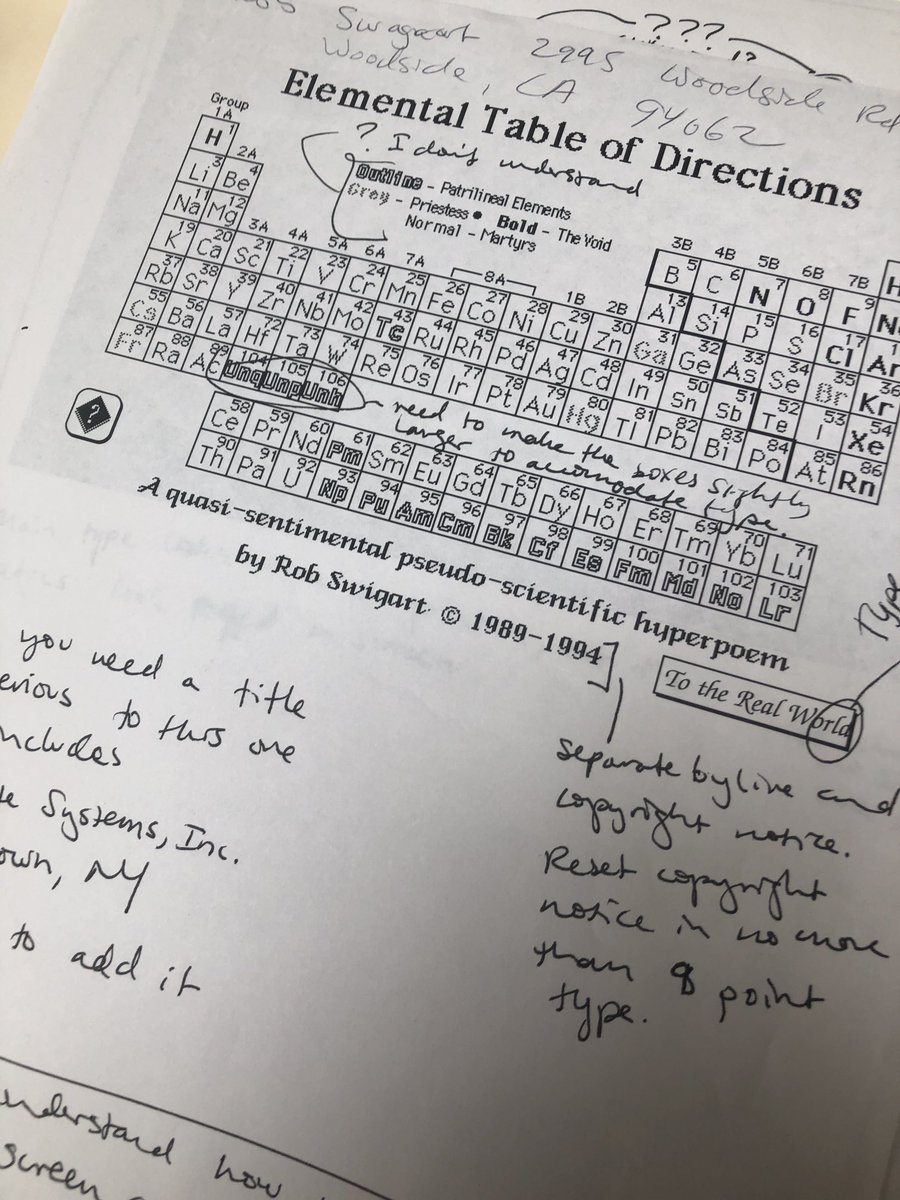 ???
!?
Swageart 2995 Woodside Rd
Woodside, CA 94062
Elemental Table of Directions
? I don't understand
Outline - Patrilineal Elements
Grey - Priestess • Bold - The Void
Normal - Martyrs
Group
1A 2A 3A 4A 5A 6A 7A 8A 1B 2B 3B 4B 5B 6B 7B
H 1
Li 3 Be 4 B 5 C 6 N 7 O 8 F 9
Na 11 Mg 12 Al 13 Si 14 P 15 S 16 Cl 17 Ar
K 19 Ca 20 Sc 21 Ti 22 V 23 Cr 24 Mn 25 Fe 26 Co 27 Ni 28 Cu 29 Zn 30 Ga 31 Ge 32 As 33 Se 34 Br 35 Kr 36
Rb 37 Sr 38 Y 39 Zr 40 Nb 41 Mo 42 Tc 43 Ru 44 Rh 45 Pd 46 Ag 47 Cd 48 In 49 Sn 50 Sb 51 Te 52 I 53 Xe 54
Cs 55 Ba 56 La 57 Hf 72 Ta 73 W 74 Re 75 Os 76 Ir 77 Pt 78 Au 79 Hg 80 Tl 81 Pb 82 Bi 83 Po 84 At 85 Rn 86
Fr 87 Ra 88 Ac 89 Unq 104 Unp 105 Unh 106
need to make the boxes slightly
larger to accomodate type.
Ce 58 Pr 59 Nd 60 Pm 61 Sm 62 Eu 63 Gd 64 Tb 65 Dy 66 Ho 67 Er 68 Tm 69 Yb 70 Lu 71
Th 90 Pa 91 U 92 Np 93 Pu 94 Am 95 Cm 96 Bk 97 Cf 98 Es 99 Fm 100 Md 101 No 102 Lr 103
?
A quasi-sentimental pseudo-scientific hyperpoem
by Rob Swigart © 1989-1994
To the Real World
Type
you need a title
to this one
includes
Systems, Inc.
NY
to add it
separate byline and
copyright notice.
Reset copyright
notice in no more
than 8 point
type.
understand how
screen